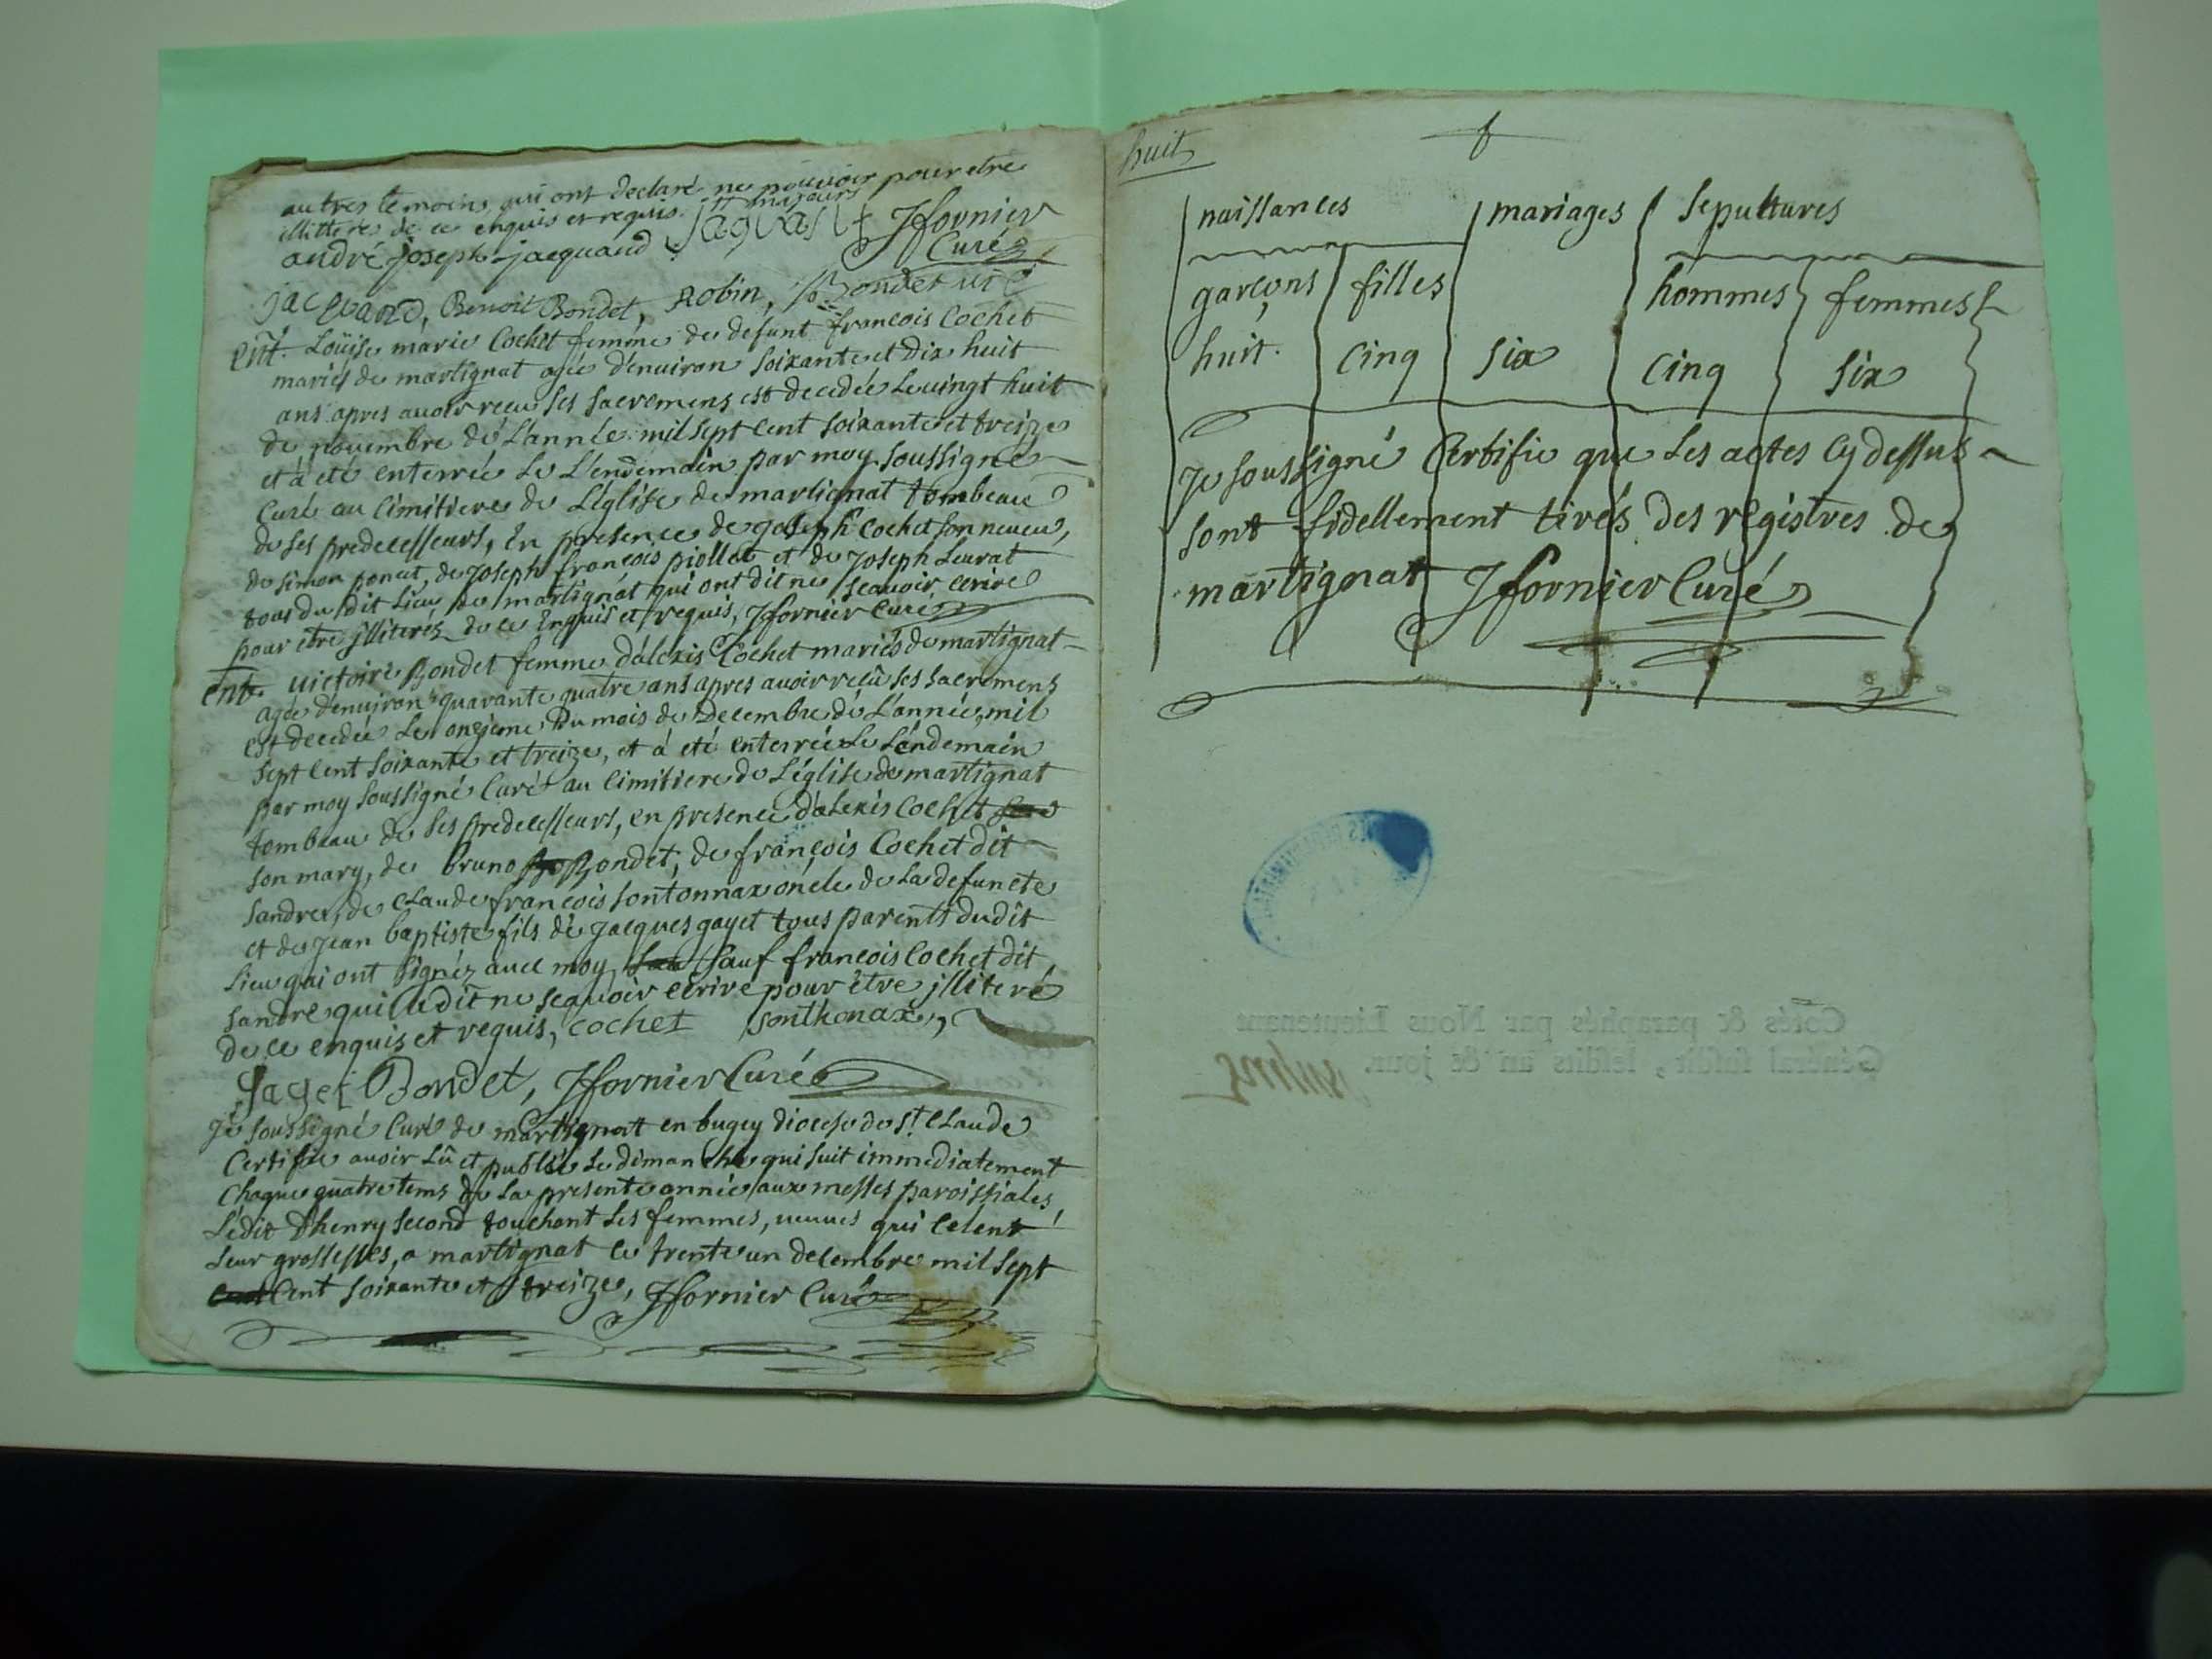 autres temoins qui ont declaré ne pouvoir pour etre
illitterés de ce enquis et requis.
andré joseph jacquand Jfornier
Curé
jacquand, Benoit Bondet, Robin, Bondet
ent. Loüise marie Cochet femme de defunt francois Cochet
mariés de martignat agée d'enuiron soixante et dix huit
ans apres auoir receu ses sacremens est decedée le uingt huit
de nouembre de L'année mil sept cent soixante et treize
et à eté enterrée le L'endemain par moy soussigné
Curé au Cimitiere de L'église de martignat tombeau
de ses predecesseurs, En presence de joseph Cochet son neueu,
de simon poncet, de Joseph francois piollet et de Joseph Leurat
tous du dit Lieu de martignat qui ont dit ne scauoir ecrire
pour être jlliterés de ce Enquis et requis, Jfornier Curé
ent. uictoire Bondet femme d'alexis Cochet mariés de martignat
agée denuiron quarante quatre ans apres auoir reçû ses sacremens
est decedée le onzieme du mois de Decembre de L'année mil
sept cent soixante et treize, et à eté enterrée Le Lendemain
par moy soussigné Curé au Cimitiere de L'église de martignat
tombeau de ses predecesseurs, en presence d'alexis Cochet
son mary, de bruno Bondet, de françois Cochet dit
sandre, de Claude francois sontonnax oncle de La defuncte
et de Jean baptiste fils de jacques gayet tous parents dudit
Lieu qui ont signéz auec moy, sauf francois Cochet dit
sandre qui à dit ne scauoir ecrire pour être jlliteré
de ce enquis et requis, cochet sonthonax,
gayet Bondet, Jfornier Curé
Je soussigné Curé de martignat en bugey diocese de St. Claude
Certifie auoir Lû et publié Le dimanche qui suit immediatement
Chaque quatretems de La presente année aux messes paroissiales
L'édit d'henry second touchant Les femmes, ueuues qui Celent
Leur grossesses, a martignat ce trente un decembre mil sept
Cent soixante et treize, Jfornier Curé
huit
naissances mariages sepultures
garçons filles hommes femmes
huit. Cinq six Cinq six
Je soussigné Certifie que Les actes Cy dessus
sont fidellement tirés des registres de
martignat Jfornier Curé
Cotés & paraphés par Nous Lieutenant
Général susdit, lesdits an & jour.